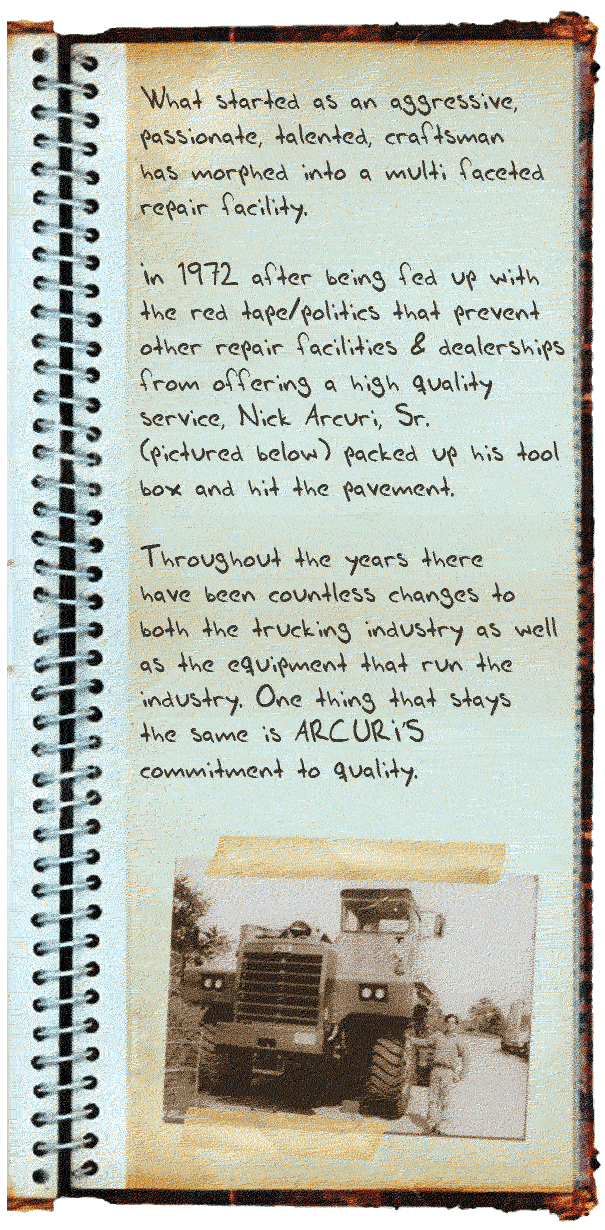 What started as an aggressive,
passionate, talented, craftsman
has morphed into a multi faceted
repair facility.
in 1972 after being fed up with
the red tape/politics that prevent
other repair facilities & dealerships
from offering a high quality
service, Nick Arcuri, Sr.
(pictured below) packed up his tool
box and hit the pavement.
Throughout the years there
have been countless changes to
both the trucking industry as well
as the equipment that run the
industry. One thing that stays
the same is ARCURi'S
commitment to quality.